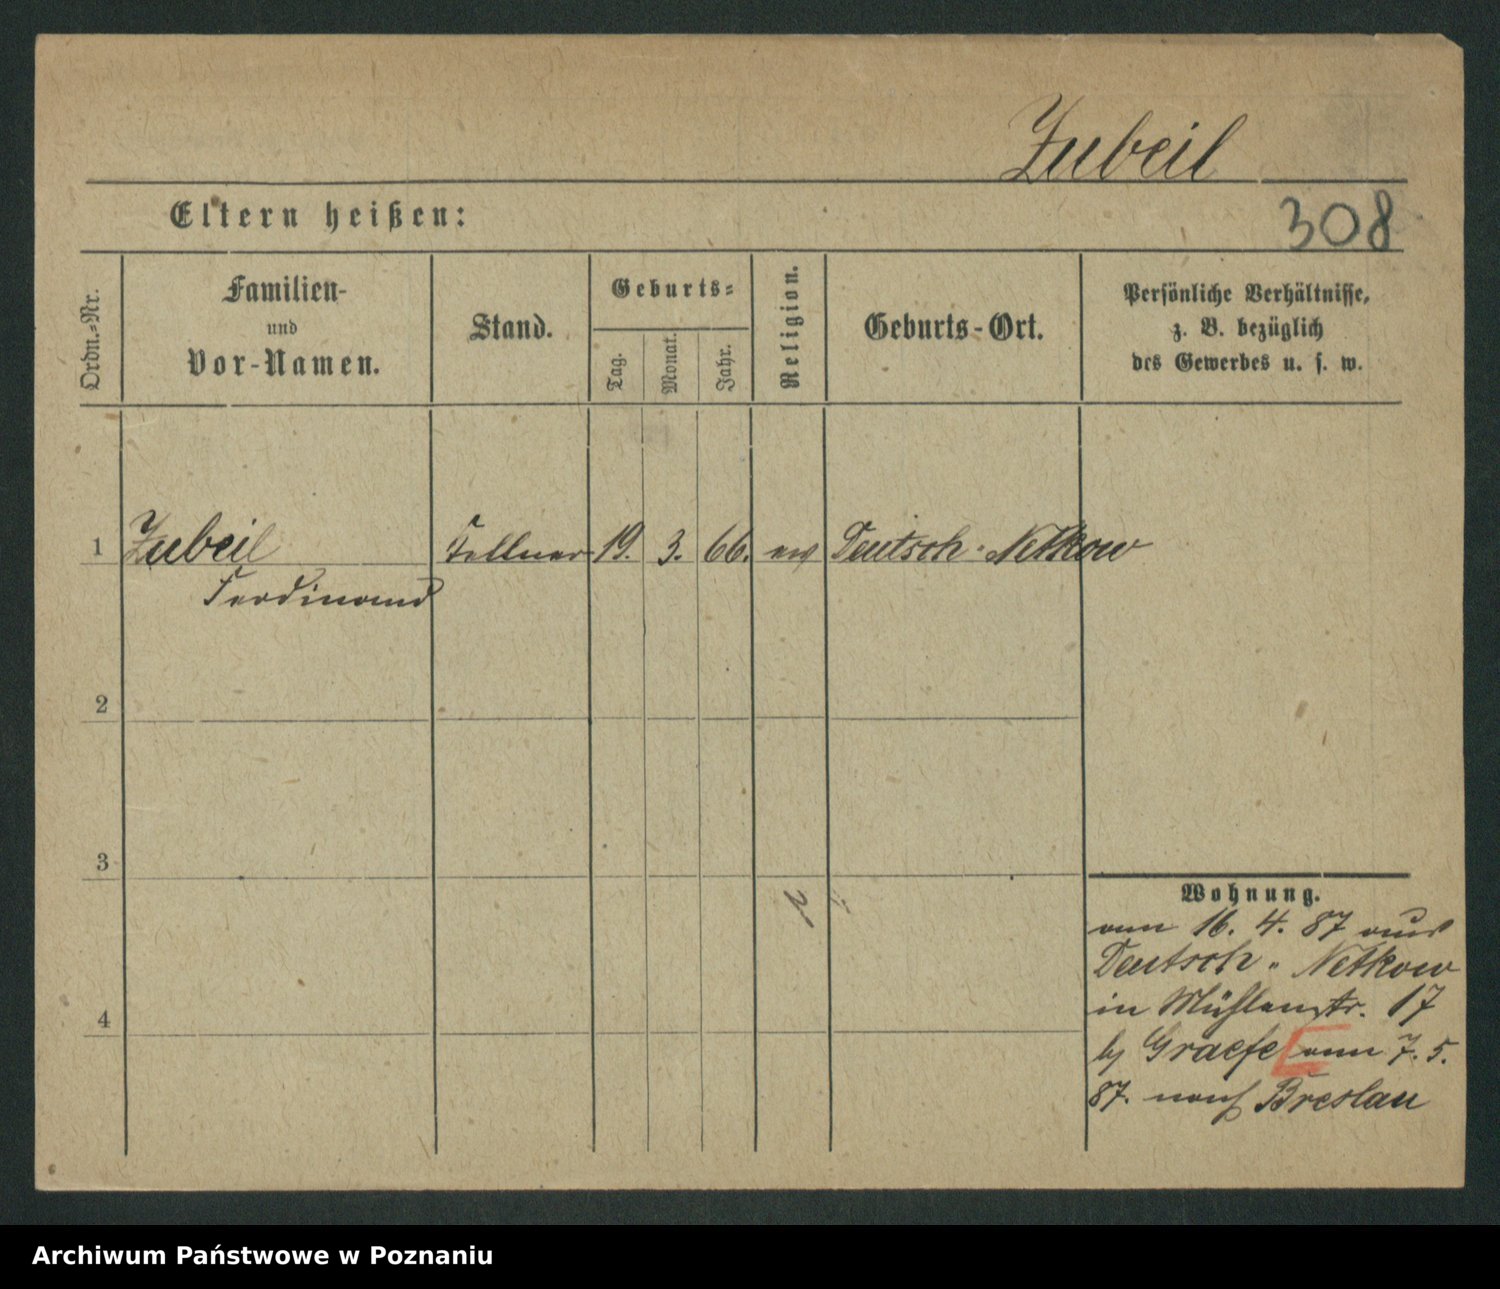 Zubeil
Eltern heißen:
308
Ordn.-Nr.
Familien-
und
Vor-Namen.
Stand.
Geburts-
Tag.
Monat.
Jahr.
Religion.
Geburts-Ort.
Persönliche Verhältnisse,
z. B. bezüglich
des Gewerbes u. s. w.
1 Zubeil Kellner 19. 3. 66. ev Deutsch-Netkow
Ferdinand
2
3
4
Wohnung.
am 16. 4. 87 aus
Deutsch-Netkow
in Mühlenstr. 17
bj Graefe am 7. 5.
87. nach Breslau
Archiwum Państwowe w Poznaniu